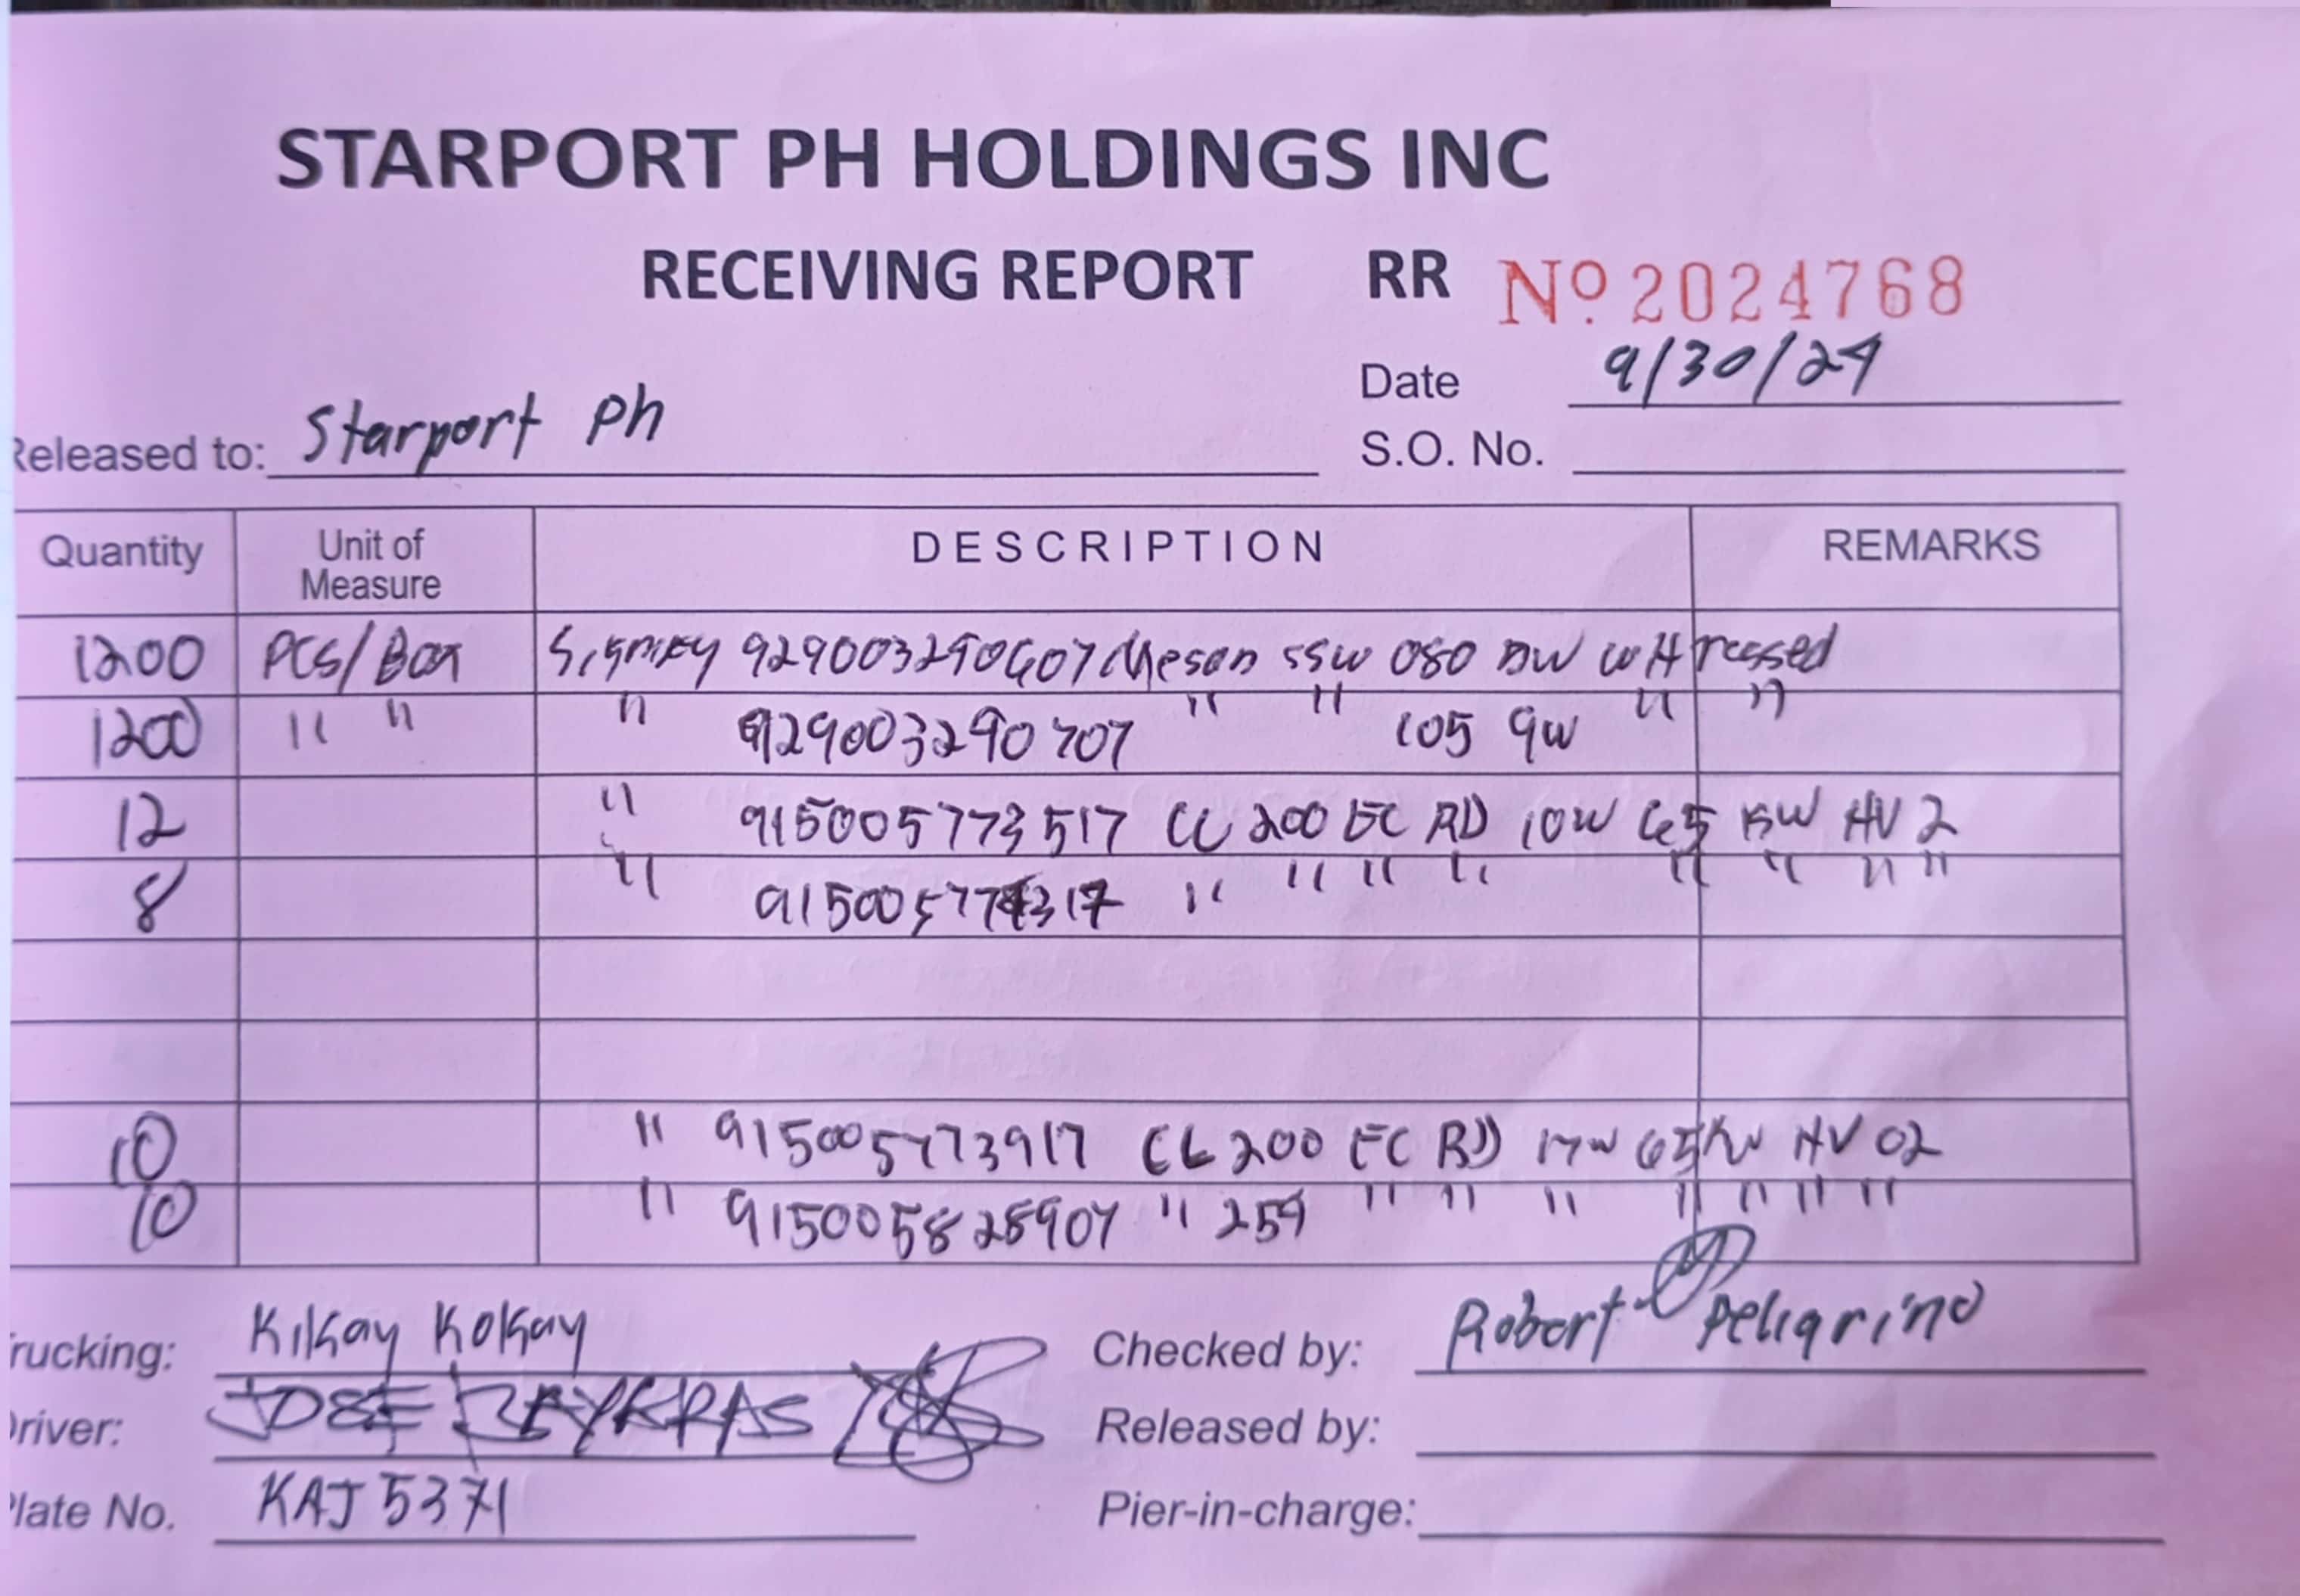 STARPORT PH HOLDINGS INC
RECEIVING REPORT RR Nº 2024768
Date 9/30/24
Released to: Starport Ph
S.O. No.
Quantity Unit of Measure DESCRIPTION REMARKS
1200 PCS/Box Signify 929003290607 Meson SSW 080 WH recssed
1200 " " " 929003290707 " " 105 9W " "
12 " 915005773517 CL 200 EC RD 10W 65 KW HV 2
8 " 915005774317 " " " " " " " "
10 " 915005773917 CL 200 EC RD 17W 65 KW HV 02
10 " 915005828907 " 254 " " " " " " "
rucking: Kikay Kokay
Checked by: Robert Peligrino
river: JOSE REYKRAS
Released by:
late No. KAJ 5371
Pier-in-charge: